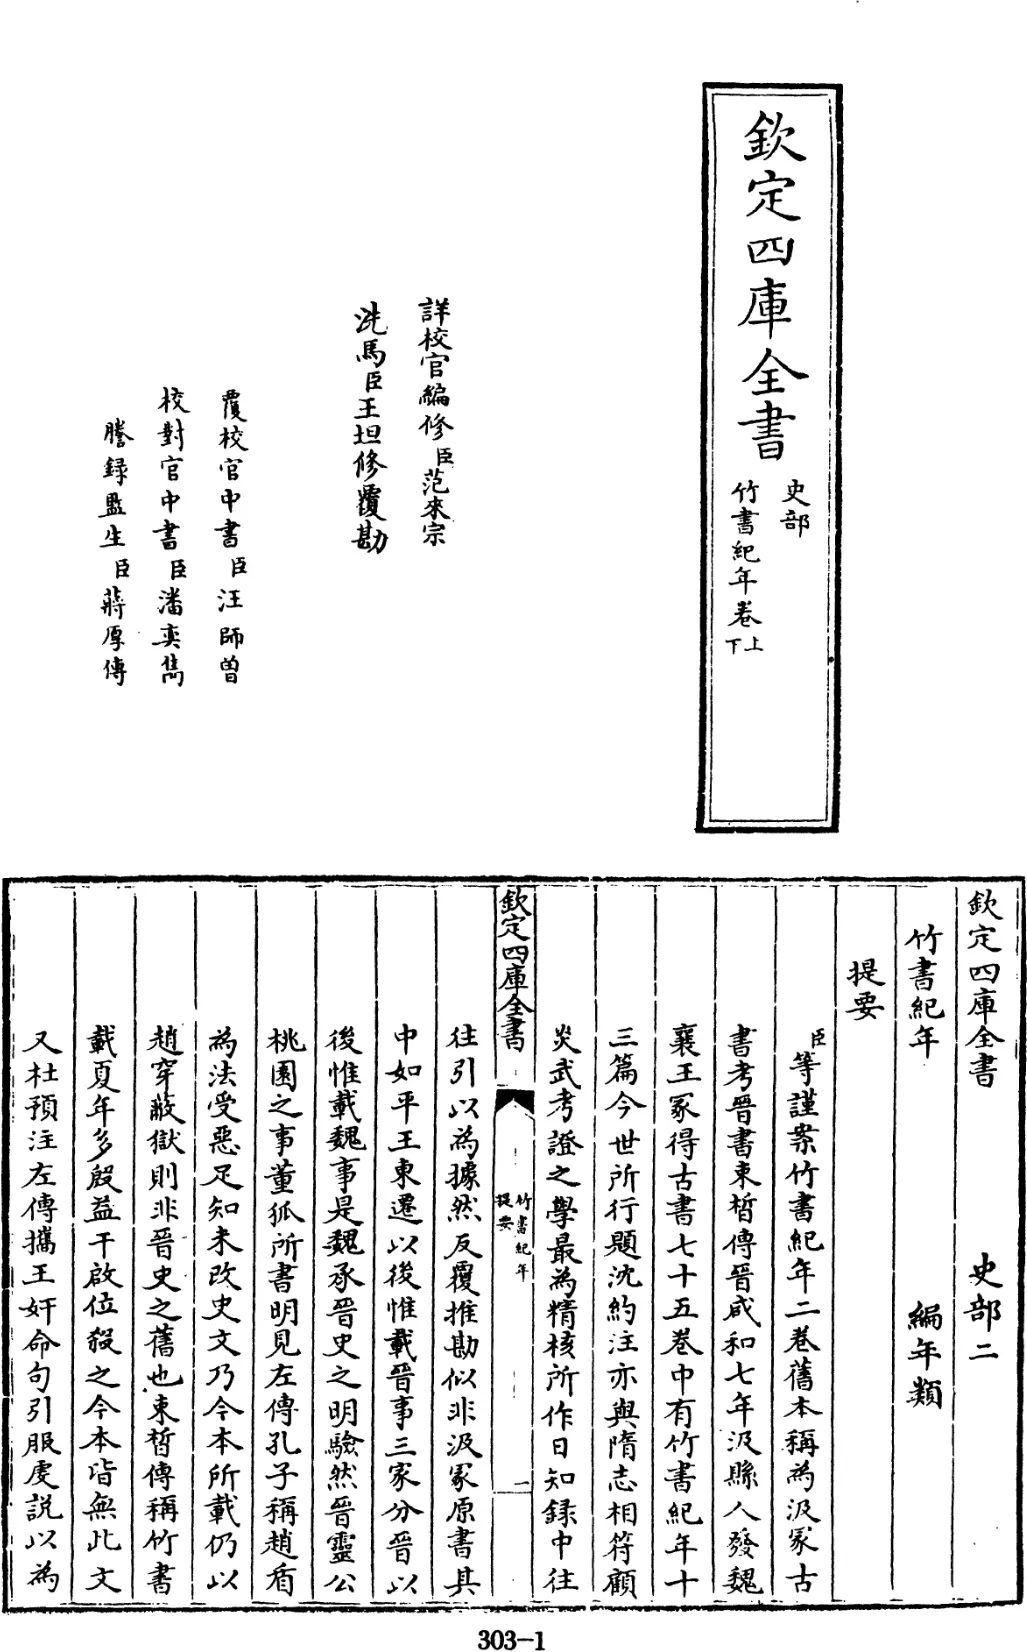 欽定四庫全書
史部
竹書紀年卷上下
詳校官編修臣范來宗
洗馬臣王坦修覆勘
覆校官中書臣汪師曾
校對官中書臣潘奕雋
謄録監生臣蔣厚傳
欽定四庫全書 史部二
竹書紀年 編年類
提要
臣等謹案竹書紀年二卷舊本稱為汲冢古
書考晉書束晳傳晉咸和七年汲縣人發魏
襄王冢得古書七十五卷中有竹書紀年十
三篇今世所行題沈約注亦與隋志相符顧
炎武考證之學最為精核所作日知録中往
欽定四庫全書 竹書紀年提要 一
往引以為據然反覆推勘似非汲冢原書其
中如平王東遷以後惟載晉事三家分晉以
後惟載魏事是魏承晉史之明驗然晉靈公
桃園之事董狐所書明見左傳孔子稱趙盾
為法受惡足知未改史文乃今本所載仍以
趙穿蔽獄則非晉史之舊也束晳傳稱竹書
載夏年多殷益干啟位啟殺之今本皆無此文
又杜預注左傳攜王奸命句引服虔説以為
303-1